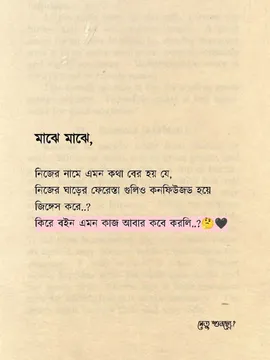 মাঝে মাঝে,
নিজের নামে এমন কথা বের হয় যে,
নিজের ঘাড়ের ফেরেস্তা গুলিও কনফিউজড হয়ে
জিঙ্গেস করে..?
কিরে বইন এমন কাজ আবার কবে করলি..?🤔🖤